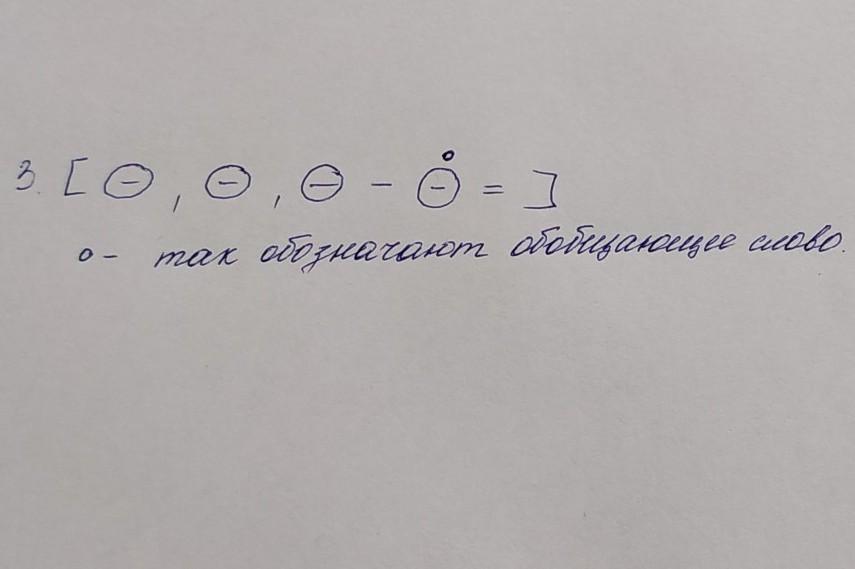 3. [ ⊖ , ⊖ , ⊖ – ⊖° = ]
о – так обозначают обобщающее слово.